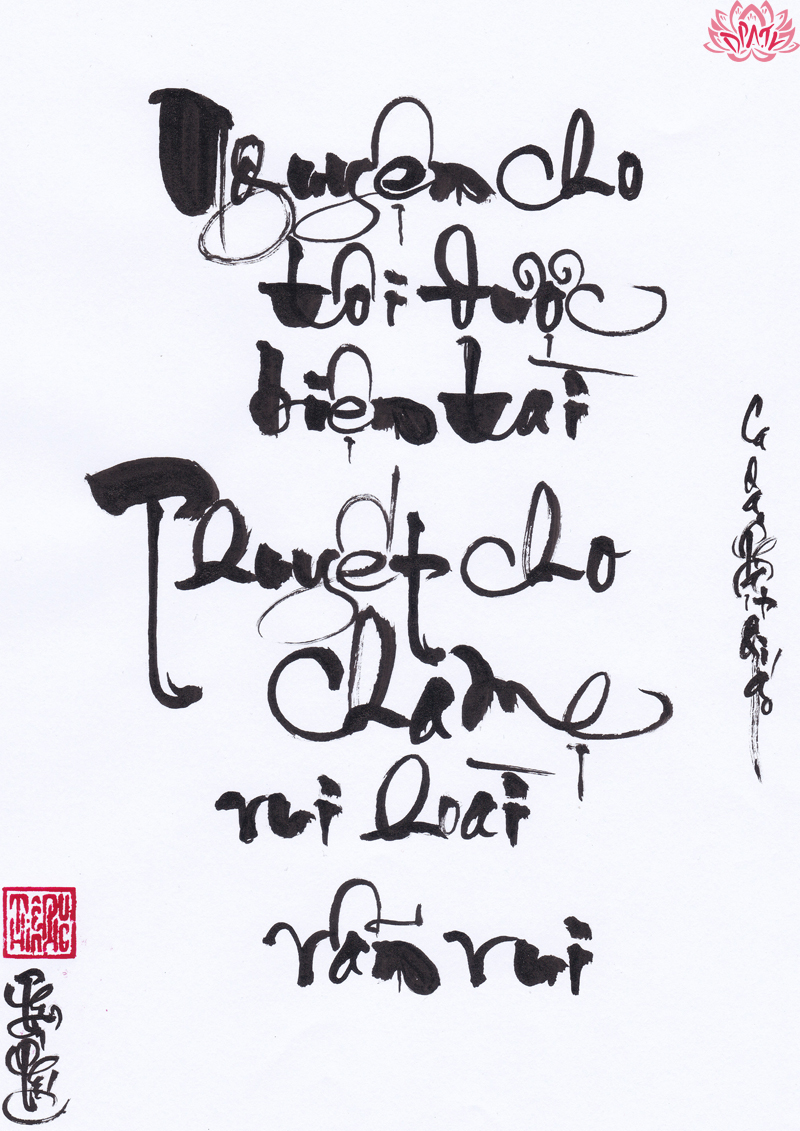 Nguyện cho
tôi được
biện tài
Thuyết cho
cha mẹ
vui hoài
vẫn vui